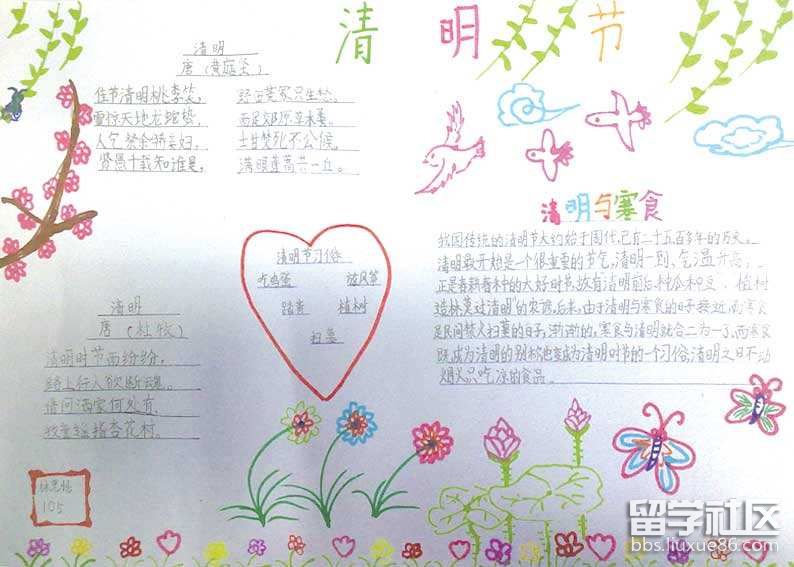 清明节
清明
唐（黄庭坚）
佳节清明桃李笑，
野田荒冢只生愁。
雷惊天地龙蛇蛰，
雨足郊原草木柔。
人乞祭余骄妾妇，
士甘焚死不公侯。
贤愚千载知谁是，
满眼蓬蒿共一丘。
清明节习俗
吃鸡蛋 放风筝
踏青 植树
扫墓
清明
唐（杜牧）
清明时节雨纷纷，
路上行人欲断魂。
借问酒家何处有，
牧童遥指杏花村。
105
清明与寒食
我国传统的清明节大约始于周代，已有二千五百多年的历史。
清明最开始是一个很重要的节气，清明一到，气温升高，
正是春耕春种的大好时节，故有清明前后，种瓜种豆，植树
造林，莫过清明"的农谚。后来，由于清明与寒食的日子接近，而寒食
是民间禁火扫墓的日子，渐渐的，寒食与清明就合二为一了，而寒食
既成为清明的别称，也变成为清明时节的一个习俗，清明之日不动
烟火，只吃凉的食品。
留学社区
bbs.liuxue86.com